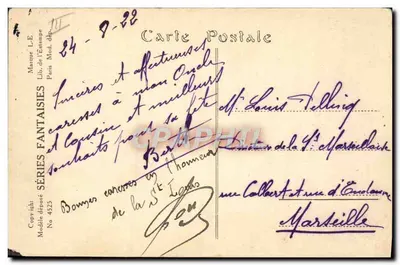 Carte Postale
24-8-22
Sincères et affectueuses
caresses à mon Oncle
et Cousin et meilleurs
souhaits pour sa fête
Bonnes caresses en l'honneur
de la St Louis
Mr Louis
de la Sté Marseillaise
rue Colbert et rue d'
Marseille
Copyright
Modèle déposé SÉRIES FANTAISIES Marque L-E
No 4525 Lib. de l'Estampe
Paris Mod. dép.